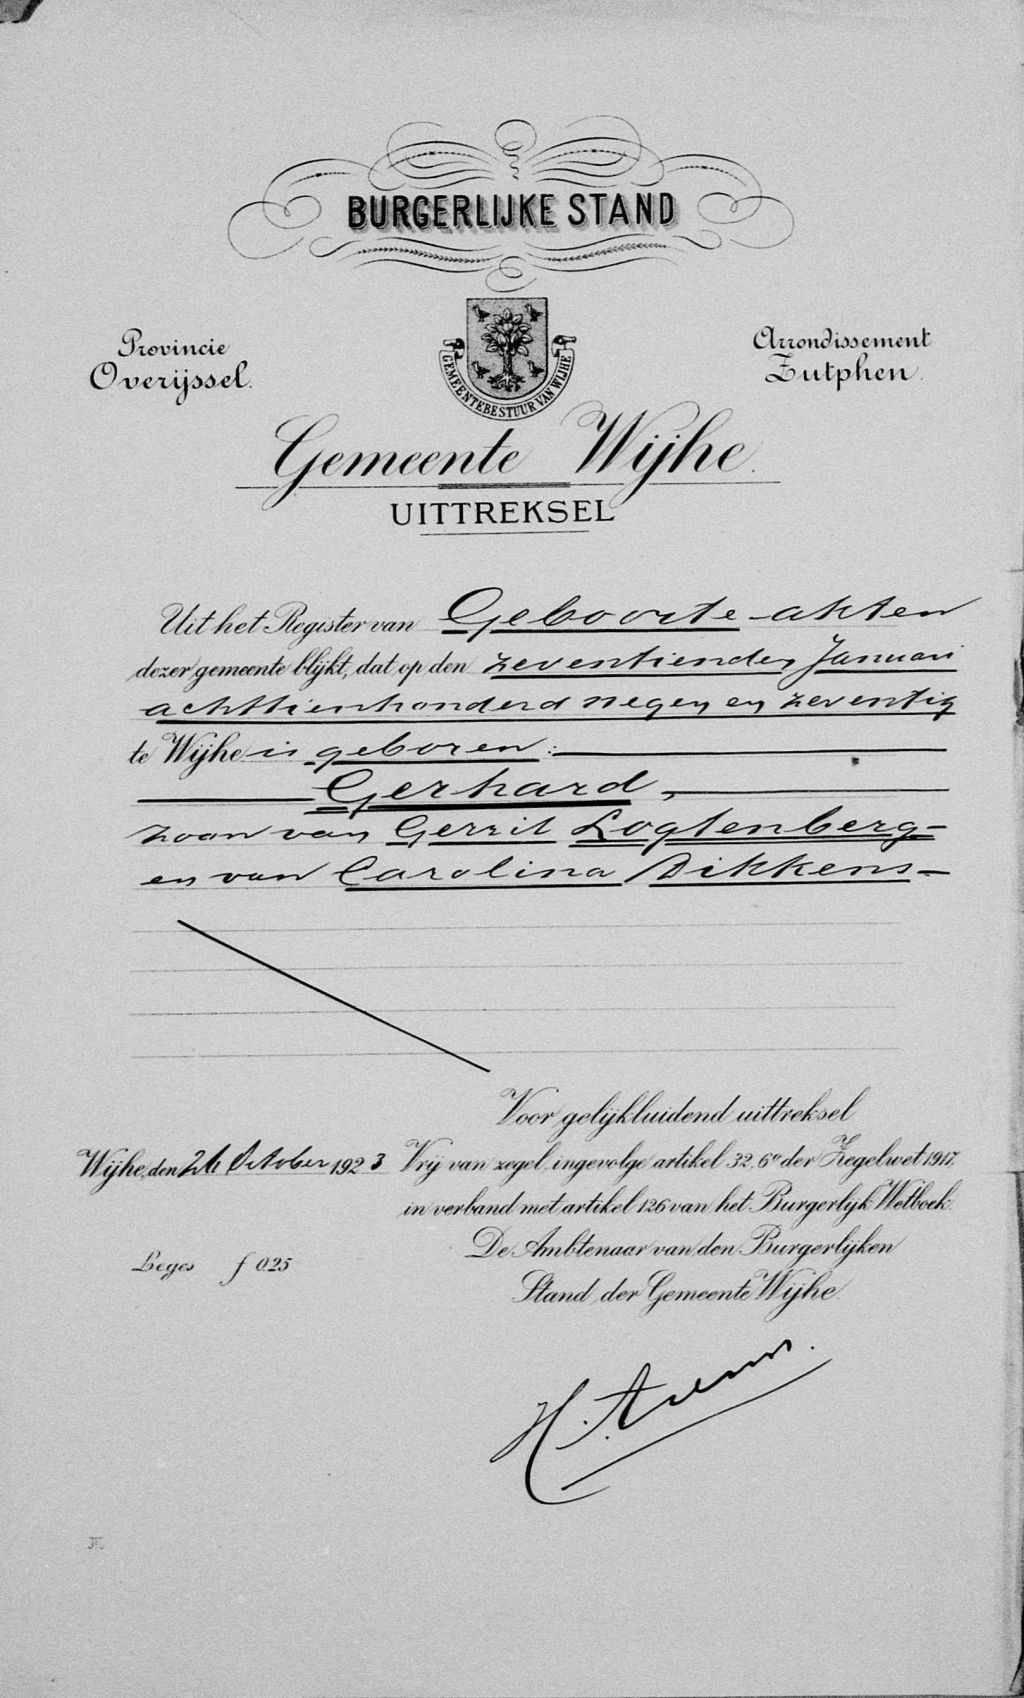 BURGERLIJKE STAND
Provincie
Overijssel.
Arrondissement
Zutphen.
GEMEENTEBESTUUR VAN WIJHE
Gemeente Wijhe.
UITTREKSEL
Uit het Register van Geboorte-akten
dezer gemeente blijkt, dat op den zeventienden Januari
achttienhonderd negen en zeventig
te Wijhe is geboren:
Gerhard,
zoon van Gerrit Logtenberg
en van Carolina Dikkens
Voor gelijkluidend uittreksel
Wijhe, den 26 October 1923 Vrij van zegel, ingevolge artikel 32, 6º der Zegelwet 1917.
in verband met artikel 126 van het Burgerlijk Wetboek.
De Ambtenaar van den Burgerlijken
Leges f 0.25
Stand der Gemeente Wijhe.
H.